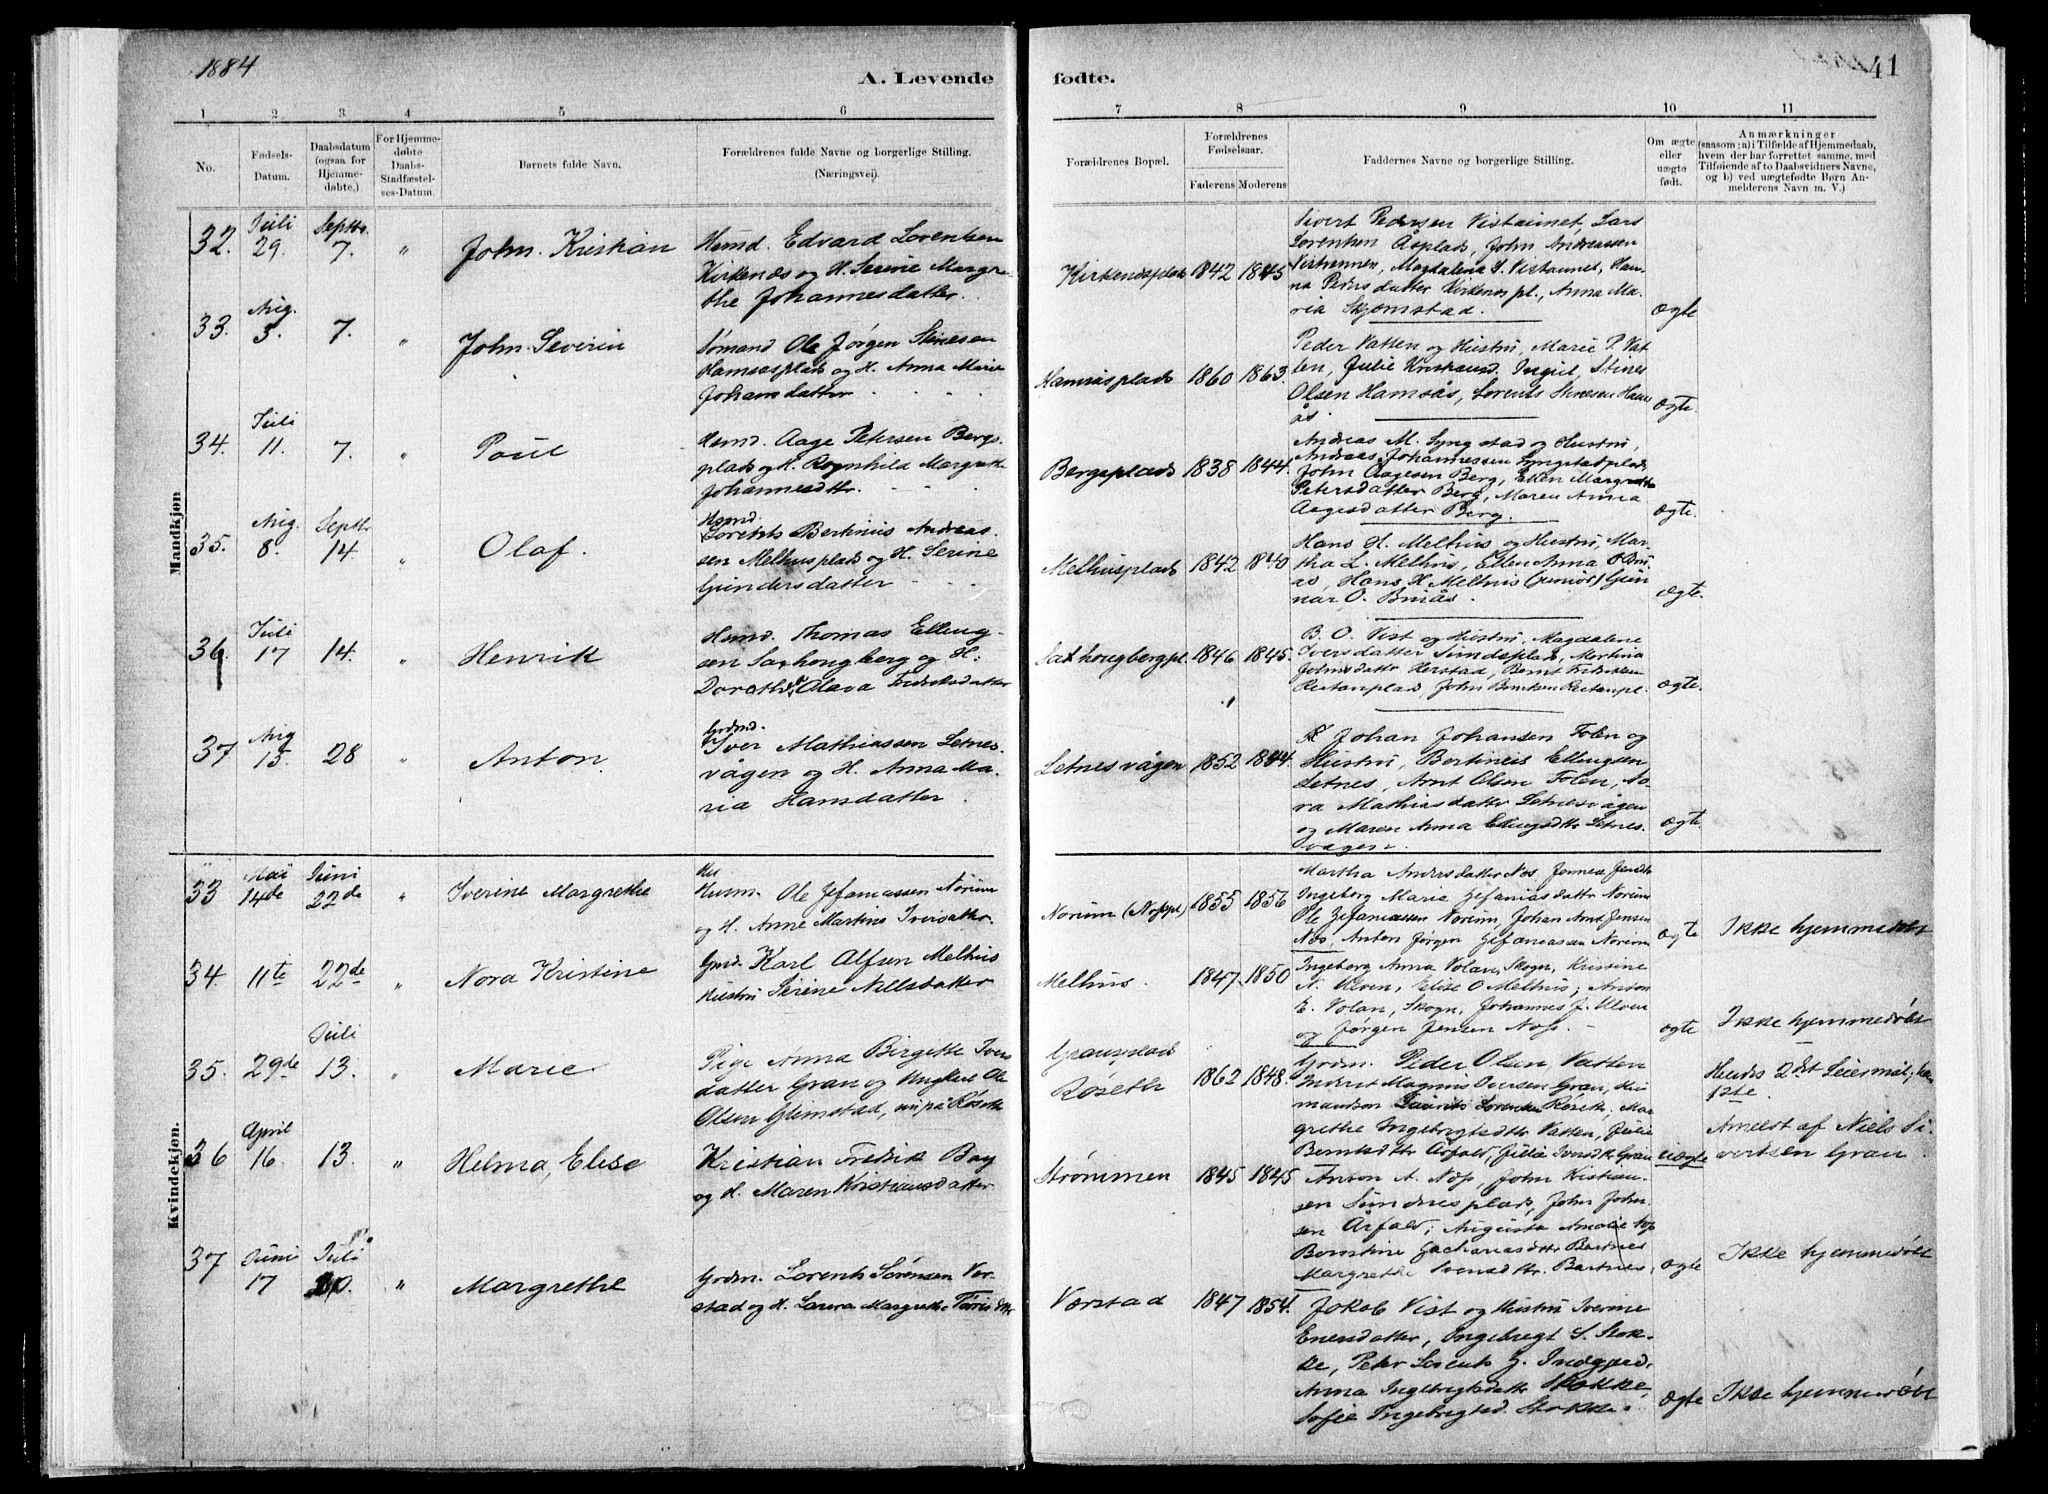 1884
A. Levende
fødte.
41
1 2 3 4 5 6 7 8 9 10 11
No.
Fødsels-
Datum.
Daabsdatum
(ogsaa for
Hjemme-
døbte.)
For Hjemme-
døbte
Daabs-
Stadfæstel-
ses-Datum.
Barnets fulde Navn.
Forældrenes fulde Navne og borgerlige Stilling.
(Næringsvei).
Forældrenes Bopæl.
Forældrenes
Fødselsaar.
Faderens Moderens
Faddernes Navne og borgerlige Stilling.
Om ægte
eller
uægte
født.
Anmærkninger
(saasom: a) i Tilfælde af Hjemmedaab,
hvem der har forrettet samme, med
Tilføiende af to Daabsvidners Navne,
og b) ved uægtefødte Børn An-
melderens Navn m. V.)
Mandkjøn
32. Juli 29. Septbr. 7. " John Kristian
Husmd. Edvard Lorentsen
Kirkenæs og H. Serine Margre-
the Johannesdatter
Kirkenæsplads 1842 1845
Sivert Pedersen Vistaunet, Lars
Lorentsen Åsplads, John Andreassen
Vistvennen, Magdalena S. Vistaunet, Han-
na Pedersdatter Kirkenæspl., Anna Ma-
ria Skjemstad.
ægte
33. Aug. 3. 7. " John Severin
Sømand Ole Jørgen Stinesen
Hamsåsplads og H. Anna Marie
Johansdatter
Hamsåsplads 1860 1863.
Peder Vatten og Hustru, Marie P. Vat-
ten, Julie Kristiansd. Ingul, Stines
Olsen Hamsås, Lorents Stinesen Hams-
ås.
ægte.
34. Juli 11. 7. " Paul
Husmd. Aage Petersen Bergs-
plads og H. Ragnhild Margrethe
Johannesdtr.
Bergsplads 1838 1844.
Andreas M. Lyngstad og Hustru,
Andreas Johannessen Lyngstadplads,
John Aagesen Berg, Ellen Margrethe
Petersdatter Berg, Maren Anna
Aagesdatter Berg.
ægte.
35. Aug. 8. Septbr 14. " Olaf.
Husmd.
Lorents Bertinius Andreas-
sen Melhusplads og H. Serine
Gundersdatter
Melhusplads 1842 1840
Hans H. Melhus og Hustru, Mar-
tha L. Melhus, Ellen Anna O. Bru-
ås, Hans H. Melhus (junior) Gun-
nar O. Bruås.
ægte.
36. Juli 17 14. " Henrik
Husmd. Thomas Elling-
sen Saxhougberg og H.
Dorothea Olava Fredriksdatter
Saxhougbergpl. 1846 1845.
B. O. Vist og Hustru, Magdalene
Iversdatter Sundsplads, Martina
Johnsdatter Herstad, Bernt Fredriksen
Rostanplads, John Berntsen Rostanpl.
ægte.
37 Aug 15. 28 " Anton.
Grdmd.
Iver Mathiassen Letnes-
vågen og H. Anna Ma-
ria Hansdatter.
Letnesvågen 1852 1844.
Johan Johansen Folen og
Hustru, Bertineis Ellingsen
Letnes, Arnt Olsen Folen, Sa-
ra Mathiasdatter Letnesvågen
og Maren Anna Ellingsdtr Letnes-
vågen.
ægte.
Kvindekjøn.
33 Mai 14de Juni 22de " Iverine Margrethe
Husm. Ole Zefaniassen Norum
og H. Anne Martine Iversdatter.
Norum (Nøsspl) 1855 1856
Martha Andersdatter Nøs,
Ingeborg Maria Zefaniasdatter Norum
Ole Zefaniassen Norum, Johan Arnt Jensen
Nøs, Anton Jørgen Zefaniassen Norum
ægte Ikke hjemmedøbt
34. 11te 22de " Nora Kristine
Grdm. Karl Alfsen Melhus
Hustru Serine Nilsdatter
Melhus. 1847. 1850
Ingeborg Anna Volan, Skogn, Kristine
N. Ulven, Elise O Melhus, Anton
E. Volan, Skogn, Johannes J. Ulven
og Jørgen Jensen Nøss.
ægte Ikke hjemmedøbt
35. 29de Juli 13. " Marie
Pige Anna Birgitte Ivers
datter Gran og Ungkarl Ole
Olsen Glimstad, nu på Røseth
Granplads
Røseth 1862 1848.
Grdm. Peder Olsen Vatten
Inderst Magnus Iversen Gran, Hus-
mandsøn Laurits Lorentsen Røseth, Mar-
grethe Ingebrigtsdtr Vatten, Julie
Berntsdtr Aafald, Julie Iversdtr Gran
uægte
Hendes 2det Leiermål; hans
1ste.
Anmeldt af Niels Si-
vertsen Gran.
36 April 16. 13. " Helma, Elise
Kristian Fredrik Bay
og H. Maren Kristiansdatter
Strømmen 1845 1845
Anton A. Nøss, John Kristian-
sen Sundnesplads, John John-
sen Aarfald; Augusta Amalie Nøss
Berntine Zachariasdtr Bartnes
Margrethe Svensdtr. Bartnes,
ægte Ikke hjemmedøbt
37 Juni 17 Juli 20. " Margrethe
Grdm. Lorents Sørensen Ver-
stad og H. Laura Margrethe Tørrisdtr
Værstad 1847 1854.
Jakob Vist og Hustru Iverine
Enersdatter, Ingebrigt S. Stok-
ke, Peter Lorents G. Indgjerd,
Anna Ingebrigtsdatter Stokke,
Sofie Ingebrigtsd. Stokke.
ægte Ikke hjemmedøbt